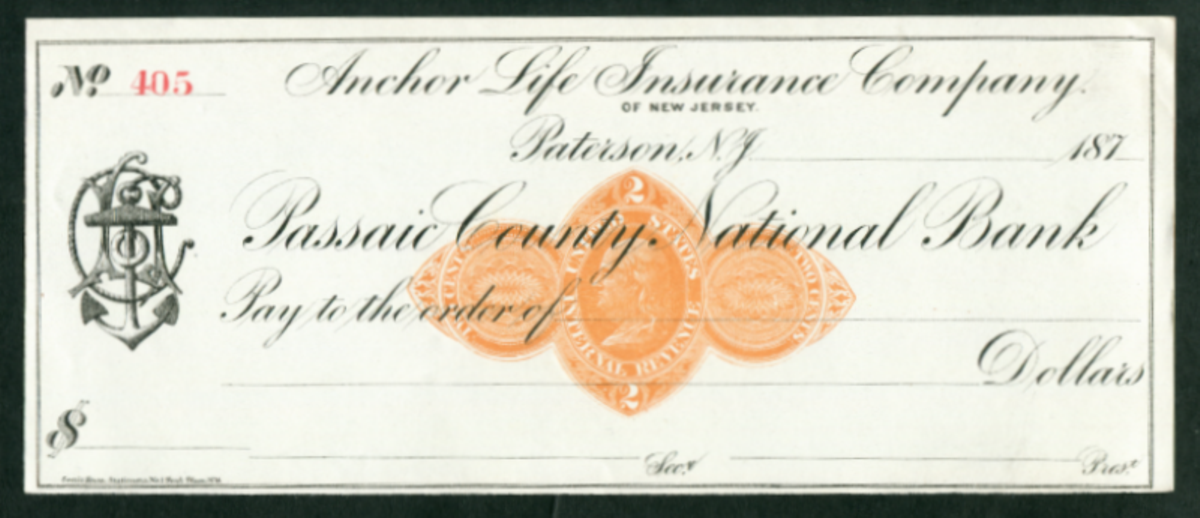 No. 405
Anchor Life Insurance Company.
OF NEW JERSEY.
Paterson, N.J. 187
Passaic County National Bank
Pay to the order of
Dollars
$
Secy. Prest.
2
UNITED STATES
INTERNAL REVENUE
TWO CENTS
TWO CENTS
2